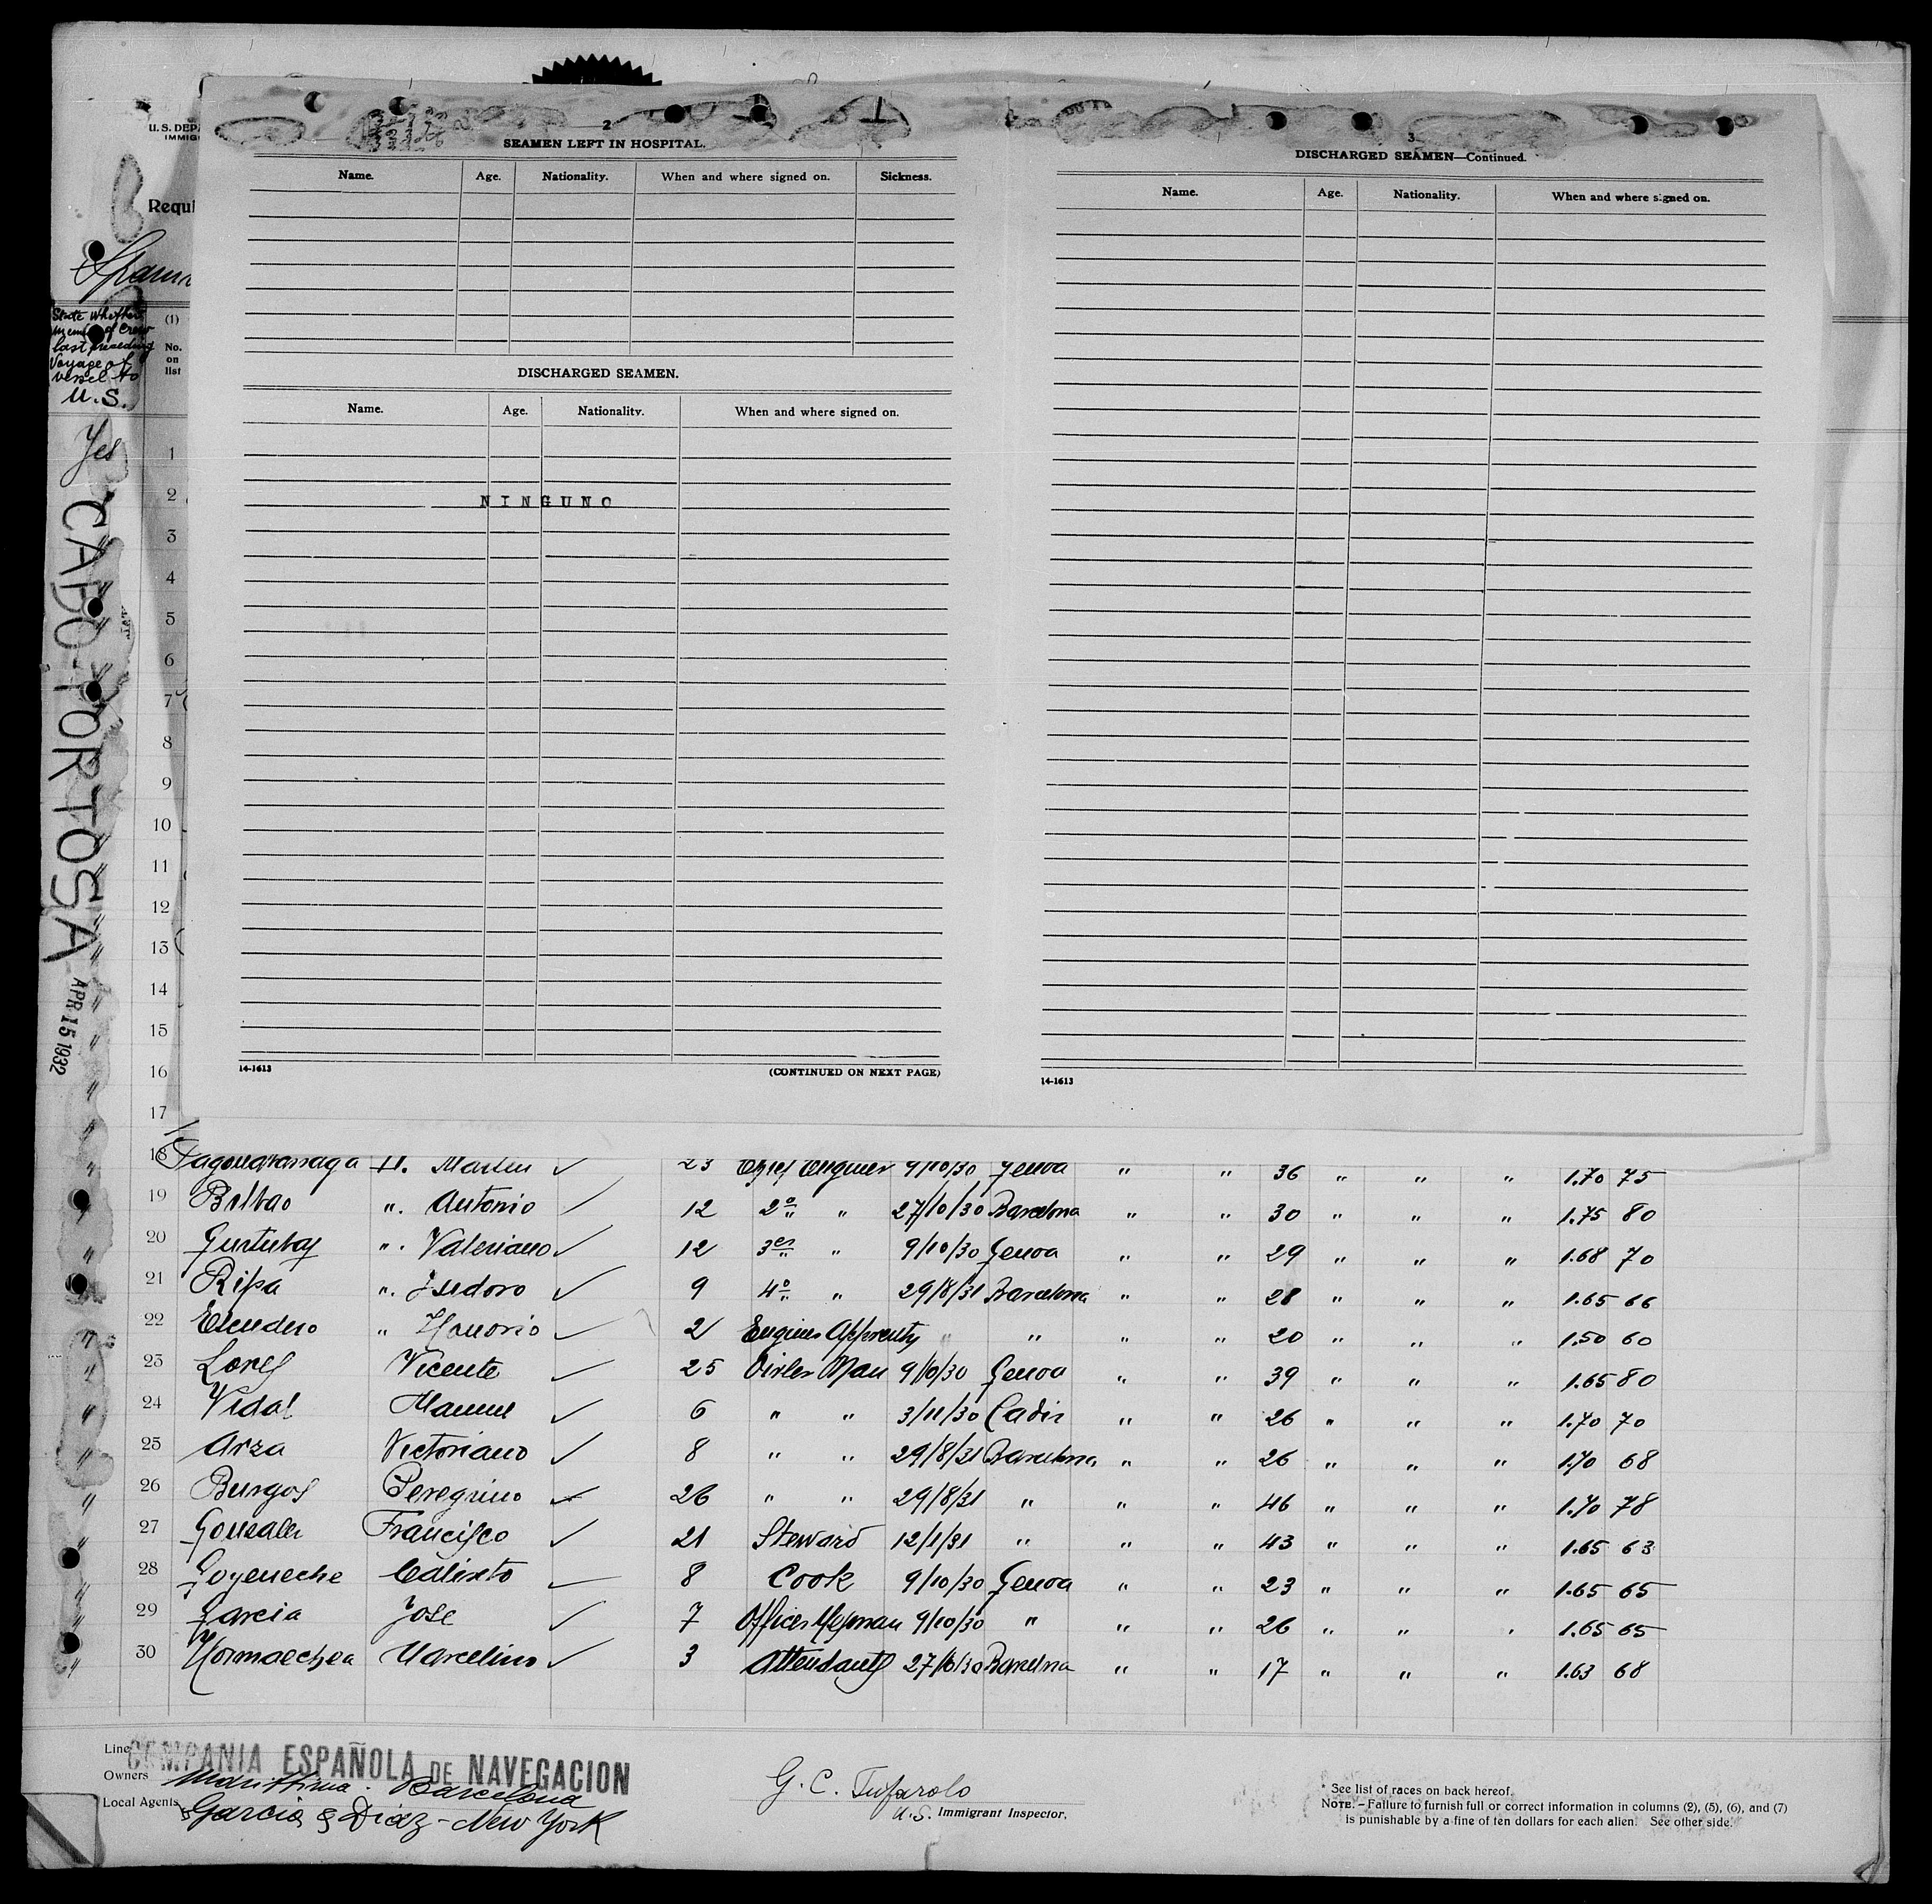 U.S. DEPA
IMMIG
Requi
State whether
member of Crew
last preceding
Voyage of
vessel to
U.S.
(1)
No.
on
list
Yes
CABO-TORTOSA
APR 15 1932
2
SEAMEN LEFT IN HOSPITAL.
Name. Age. Nationality. When and where signed on. Sickness.
DISCHARGED SEAMEN.
Name. Age. Nationality. When and where signed on.
NINGUNO
14-1613 (CONTINUED ON NEXT PAGE)
3
DISCHARGED SEAMEN—Continued.
Name. Age. Nationality. When and where signed on.
14-1613
1
2
3
4
5
6
7
8
9
10
11
12
13
14
15
16
17
18 Martin ✓ 23 Chief Engineer 9/10/30 Genoa " " 36 " " " 1.70 75
" 19 Bilbao ". Antonio ✓ 12 2º " 27/10/30 Barcelona " " 30 " " " 1.75 80
" 20 Gurtubay ". Valeriano ✓ 12 3er " 9/10/30 Genoa " " 29 " " " 1.68 70
" 21 Ripa ". Isidoro ✓ 9 4º " 29/8/31 Barcelona " " 28 " " " 1.65 66
" 22 Escudero " Honorio ✓ 2 " " " " 20 " " " 1.50 60
" 23 Vicente ✓ 25 Man 9/10/30 Genoa " " 39 " " " 1.65 80
" 24 Vidal Manuel ✓ 6 " " 3/11/30 Cadiz " " 26 " " " 1.70 70
" 25 Arza Victoriano ✓ 8 " " 29/8/31 Barcelona " " 26 " " " 1.70 68
" 26 Burgos Peregrino ✓ 26 " " 29/8/31 " " " 46 " " " 1.70 78
" 27 Gonzalez Francisco ✓ 21 Steward 12/1/31 " " " 43 " " " 1.65 63
" 28 Goyeneche Calixto ✓ 8 Cook 9/10/30 Genoa " " 23 " " " 1.65 65
" 29 Garcia Jose ✓ 7 Officer Messman 9/10/30 " " " 26 " " " 1.65 65
" 30 Hormaechea Marcelino ✓ 3 27/10/30 Barcelona " " 17 " " " 1.63 68
Line COMPANIA ESPAÑOLA DE NAVEGACION
Owners Maritima. Barcelona
Local Agents Garcia & Diaz - New York
G. C. Tufarolo
U.S. Immigrant Inspector.
* See list of races on back hereof.
NOTE.—Failure to furnish full or correct information in columns (2), (5), (6), and (7)
is punishable by a fine of ten dollars for each alien. See other side.